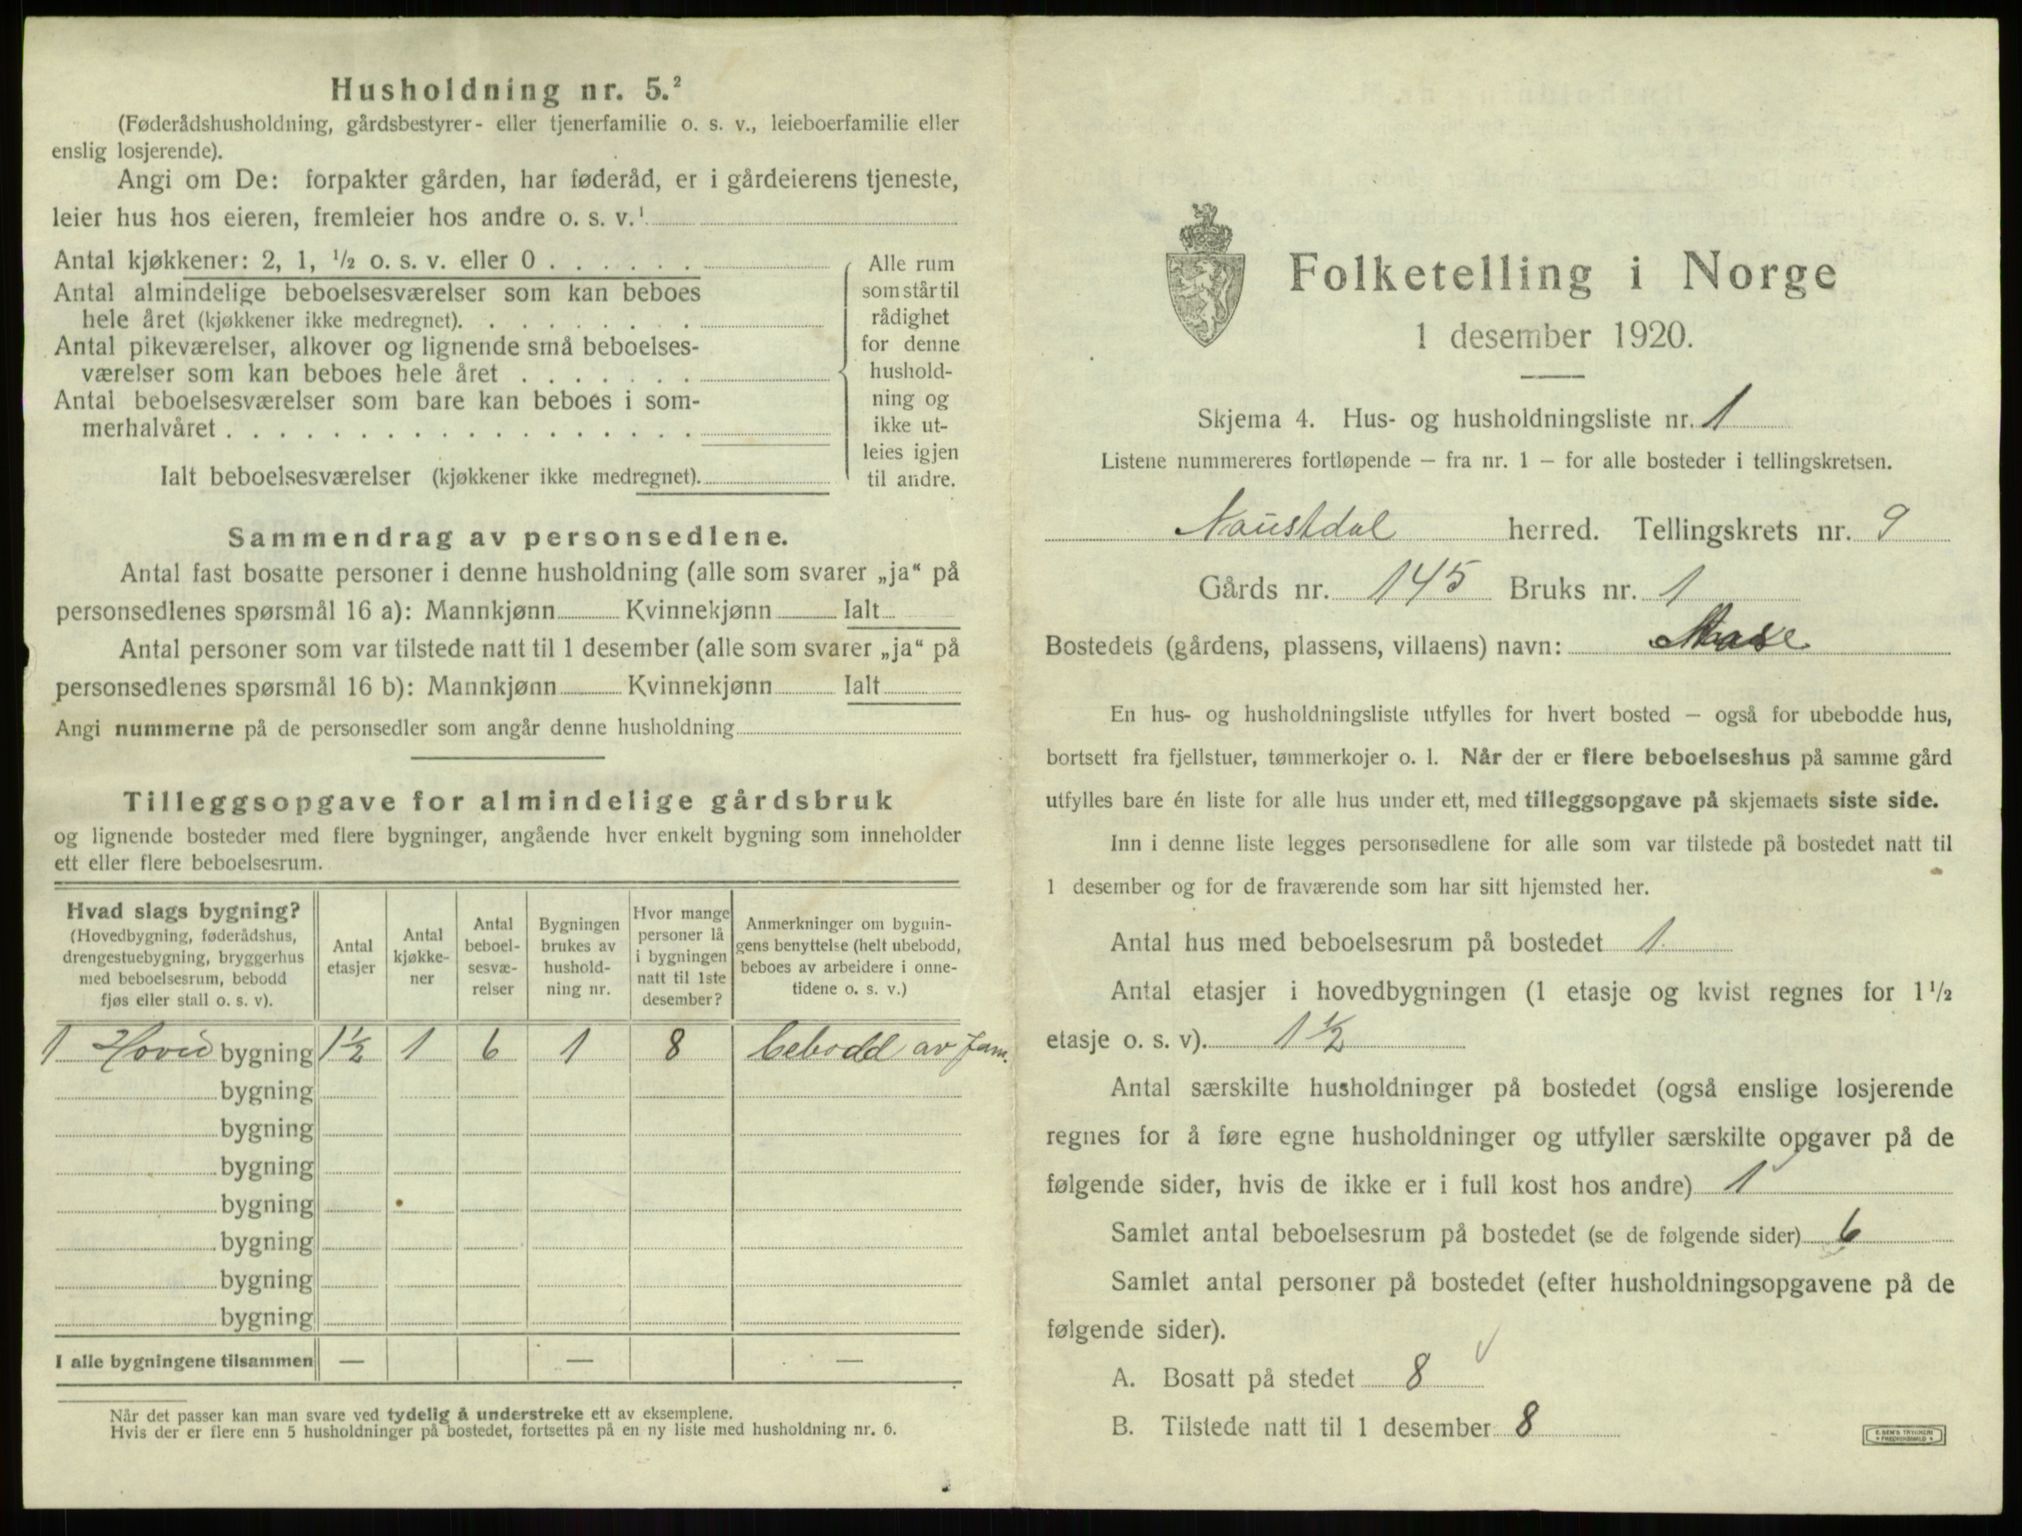 Husholdning nr. 5.²
(Føderådshusholdning, gårdsbestyrer- eller tjenerfamilie o. s. v., leieboerfamilie eller
enslig losjerende).
Angi om De: forpakter gården, har føderåd, er i gårdeierens tjeneste,
leier hus hos eieren, fremleier hos andre o. s. v.¹
Antal kjøkkener: 2, 1, ½ o. s. v. eller 0 . . . . . .
Antal almindelige beboelsesværelser som kan beboes
hele året (kjøkkener ikke medregnet). . . . . . . . .
Antal pikeværelser, alkover og lignende små beboelses-
værelser som kan beboes hele året . . . . . . .
Antal beboelsesværelser som bare kan beboes i som-
merhalvåret . . . . . . . . . . . . . . . . . .
Ialt beboelsesværelser (kjøkkener ikke medregnet).
Alle rum
som står til
rådighet
for denne
hushold-
ning og
ikke ut-
leies igjen
til andre.
Sammendrag av personsedlene.
Antal fast bosatte personer i denne husholdning (alle som svarer „ja“ på
personsedlenes spørsmål 16 a): Mannkjønn Kvinnekjønn Ialt
Antal personer som var tilstede natt til 1 desember (alle som svarer „ja“ på
personsedlenes spørsmål 16 b): Mannkjønn Kvinnekjønn Ialt
Angi nummerne på de personsedler som angår denne husholdning
Tilleggsopgave for almindelige gårdsbruk
og lignende bosteder med flere bygninger, angående hver enkelt bygning som inneholder
ett eller flere beboelsesrum.
Hvad slags bygning?
(Hovedbygning, føderådshus,
drengestuebygning, bryggerhus
med beboelsesrum, bebodd
fjøs eller stall o. s. v).
Antal
etasjer
Antal
kjøkke-
ner
Antal
beboel-
sesvæ-
relser
Bygningen
brukes av
hushold-
ning nr.
Hvor mange
personer lå
i bygningen
natt til 1ste
desember?
Anmerkninger om bygnin-
gens benyttelse (helt ubebodd,
beboes av arbeidere i onne-
tidene o. s. v.)
1 Hoved bygning 1½ 1 6 1 8 bebodd av fam.
bygning
bygning
bygning
bygning
bygning
bygning
bygning
I alle bygningene tilsammen — — —
Når det passer kan man svare ved tydelig å understreke ett av eksemplene.
Hvis der er flere enn 5 husholdninger på bostedet, fortsettes på en ny liste med husholdning nr. 6.
Folketelling i Norge
1 desember 1920.
Skjema 4. Hus- og husholdningsliste nr. 1
Listene nummereres fortløpende — fra nr. 1 — for alle bosteder i tellingskretsen.
Naustdal herred. Tellingskrets nr. 9
Gårds nr. 145 Bruks nr. 1
Bostedets (gårdens, plassens, villaens) navn:
En hus- og husholdningsliste utfylles for hvert bosted — også for ubebodde hus,
bortsett fra fjellstuer, tømmerkojer o. l. Når der er flere beboelseshus på samme gård
utfylles bare én liste for alle hus under ett, med tilleggsopgave på skjemaets siste side.
Inn i denne liste legges personsedlene for alle som var tilstede på bostedet natt til
1 desember og for de fraværende som har sitt hjemsted her.
Antal hus med beboelsesrum på bostedet 1
Antal etasjer i hovedbygningen (1 etasje og kvist regnes for 1½
etasje o. s. v). 1½
Antal særskilte husholdninger på bostedet (også enslige losjerende
regnes for å føre egne husholdninger og utfyller særskilte opgaver på de
følgende sider, hvis de ikke er i full kost hos andre) 1
Samlet antal beboelsesrum på bostedet (se de følgende sider) 6
Samlet antal personer på bostedet (efter husholdningsopgavene på de
følgende sider).
A. Bosatt på stedet 8
B. Tilstede natt til 1 desember 8